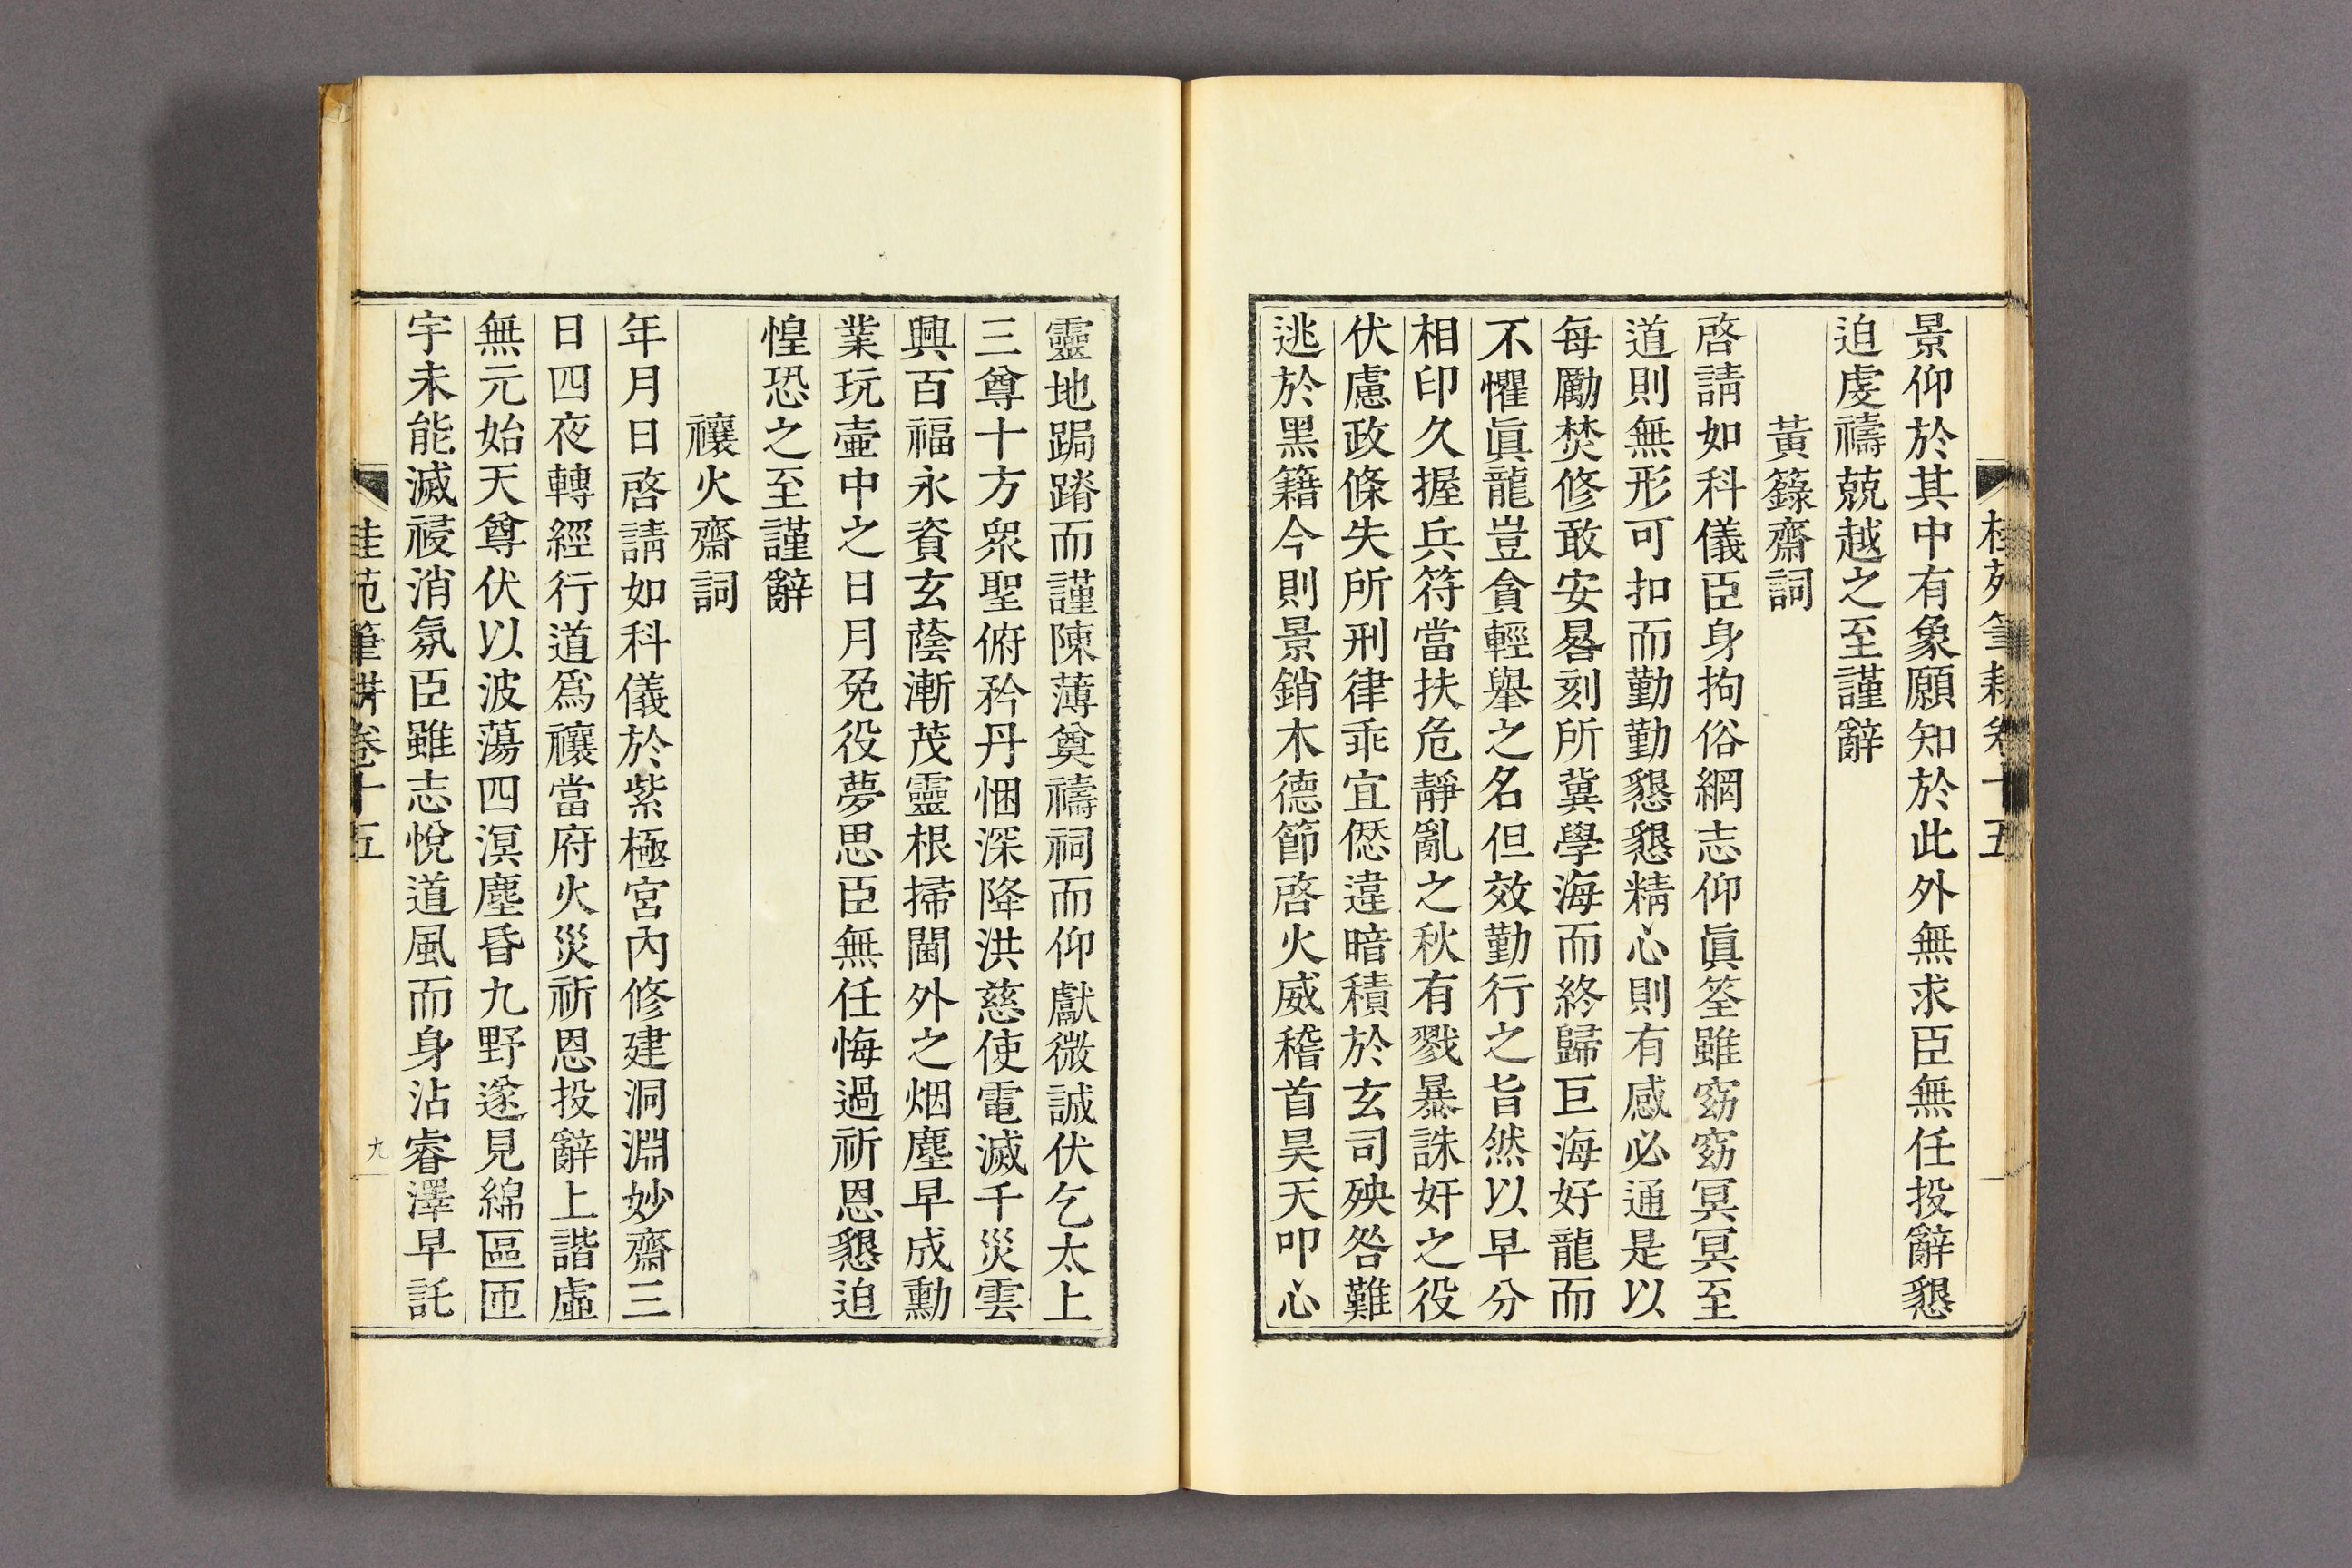 桂苑筆耕卷十五
景仰於其中有象願知於此外無求臣無任投辭懇
迫虔禱兢越之至謹辭
黃籙齋詞
啓請如科儀臣身拘俗網志仰眞筌雖窈窈冥冥至
道則無形可扣而勤勤懇懇精心則有感必通是以
每勵焚修敢安晷刻所冀學海而終歸巨海好龍而
不懼眞龍豈貪輕舉之名但效勤行之旨然以早分
相印久握兵符當扶危靜亂之秋有戮暴誅奸之役
伏慮政條失所刑律乖宜愆違暗積於玄司殃咎難
逃於黑籍今則景銷木德節啓火威稽首昊天叩心
靈地跼蹐而謹陳薄奠禱祠而仰獻微誠伏乞太上
三尊十方衆聖俯矜丹悃深降洪慈使電滅千災雲
興百福永資玄蔭漸茂靈根掃閫外之烟塵早成勳
業玩壷中之日月免役夢思臣無任悔過祈恩懇迫
惶恐之至謹辭
禳火齋詞
年月日啓請如科儀於紫極宮內修建洞淵妙齋三
日四夜轉經行道爲禳當府火災祈恩投辭上諧虛
無元始天尊伏以波蕩四溟塵昏九野遂見綿區匝
宇未能滅祲消氛臣雖志悅道風而身沾睿澤早託
桂苑筆耕卷十五
九